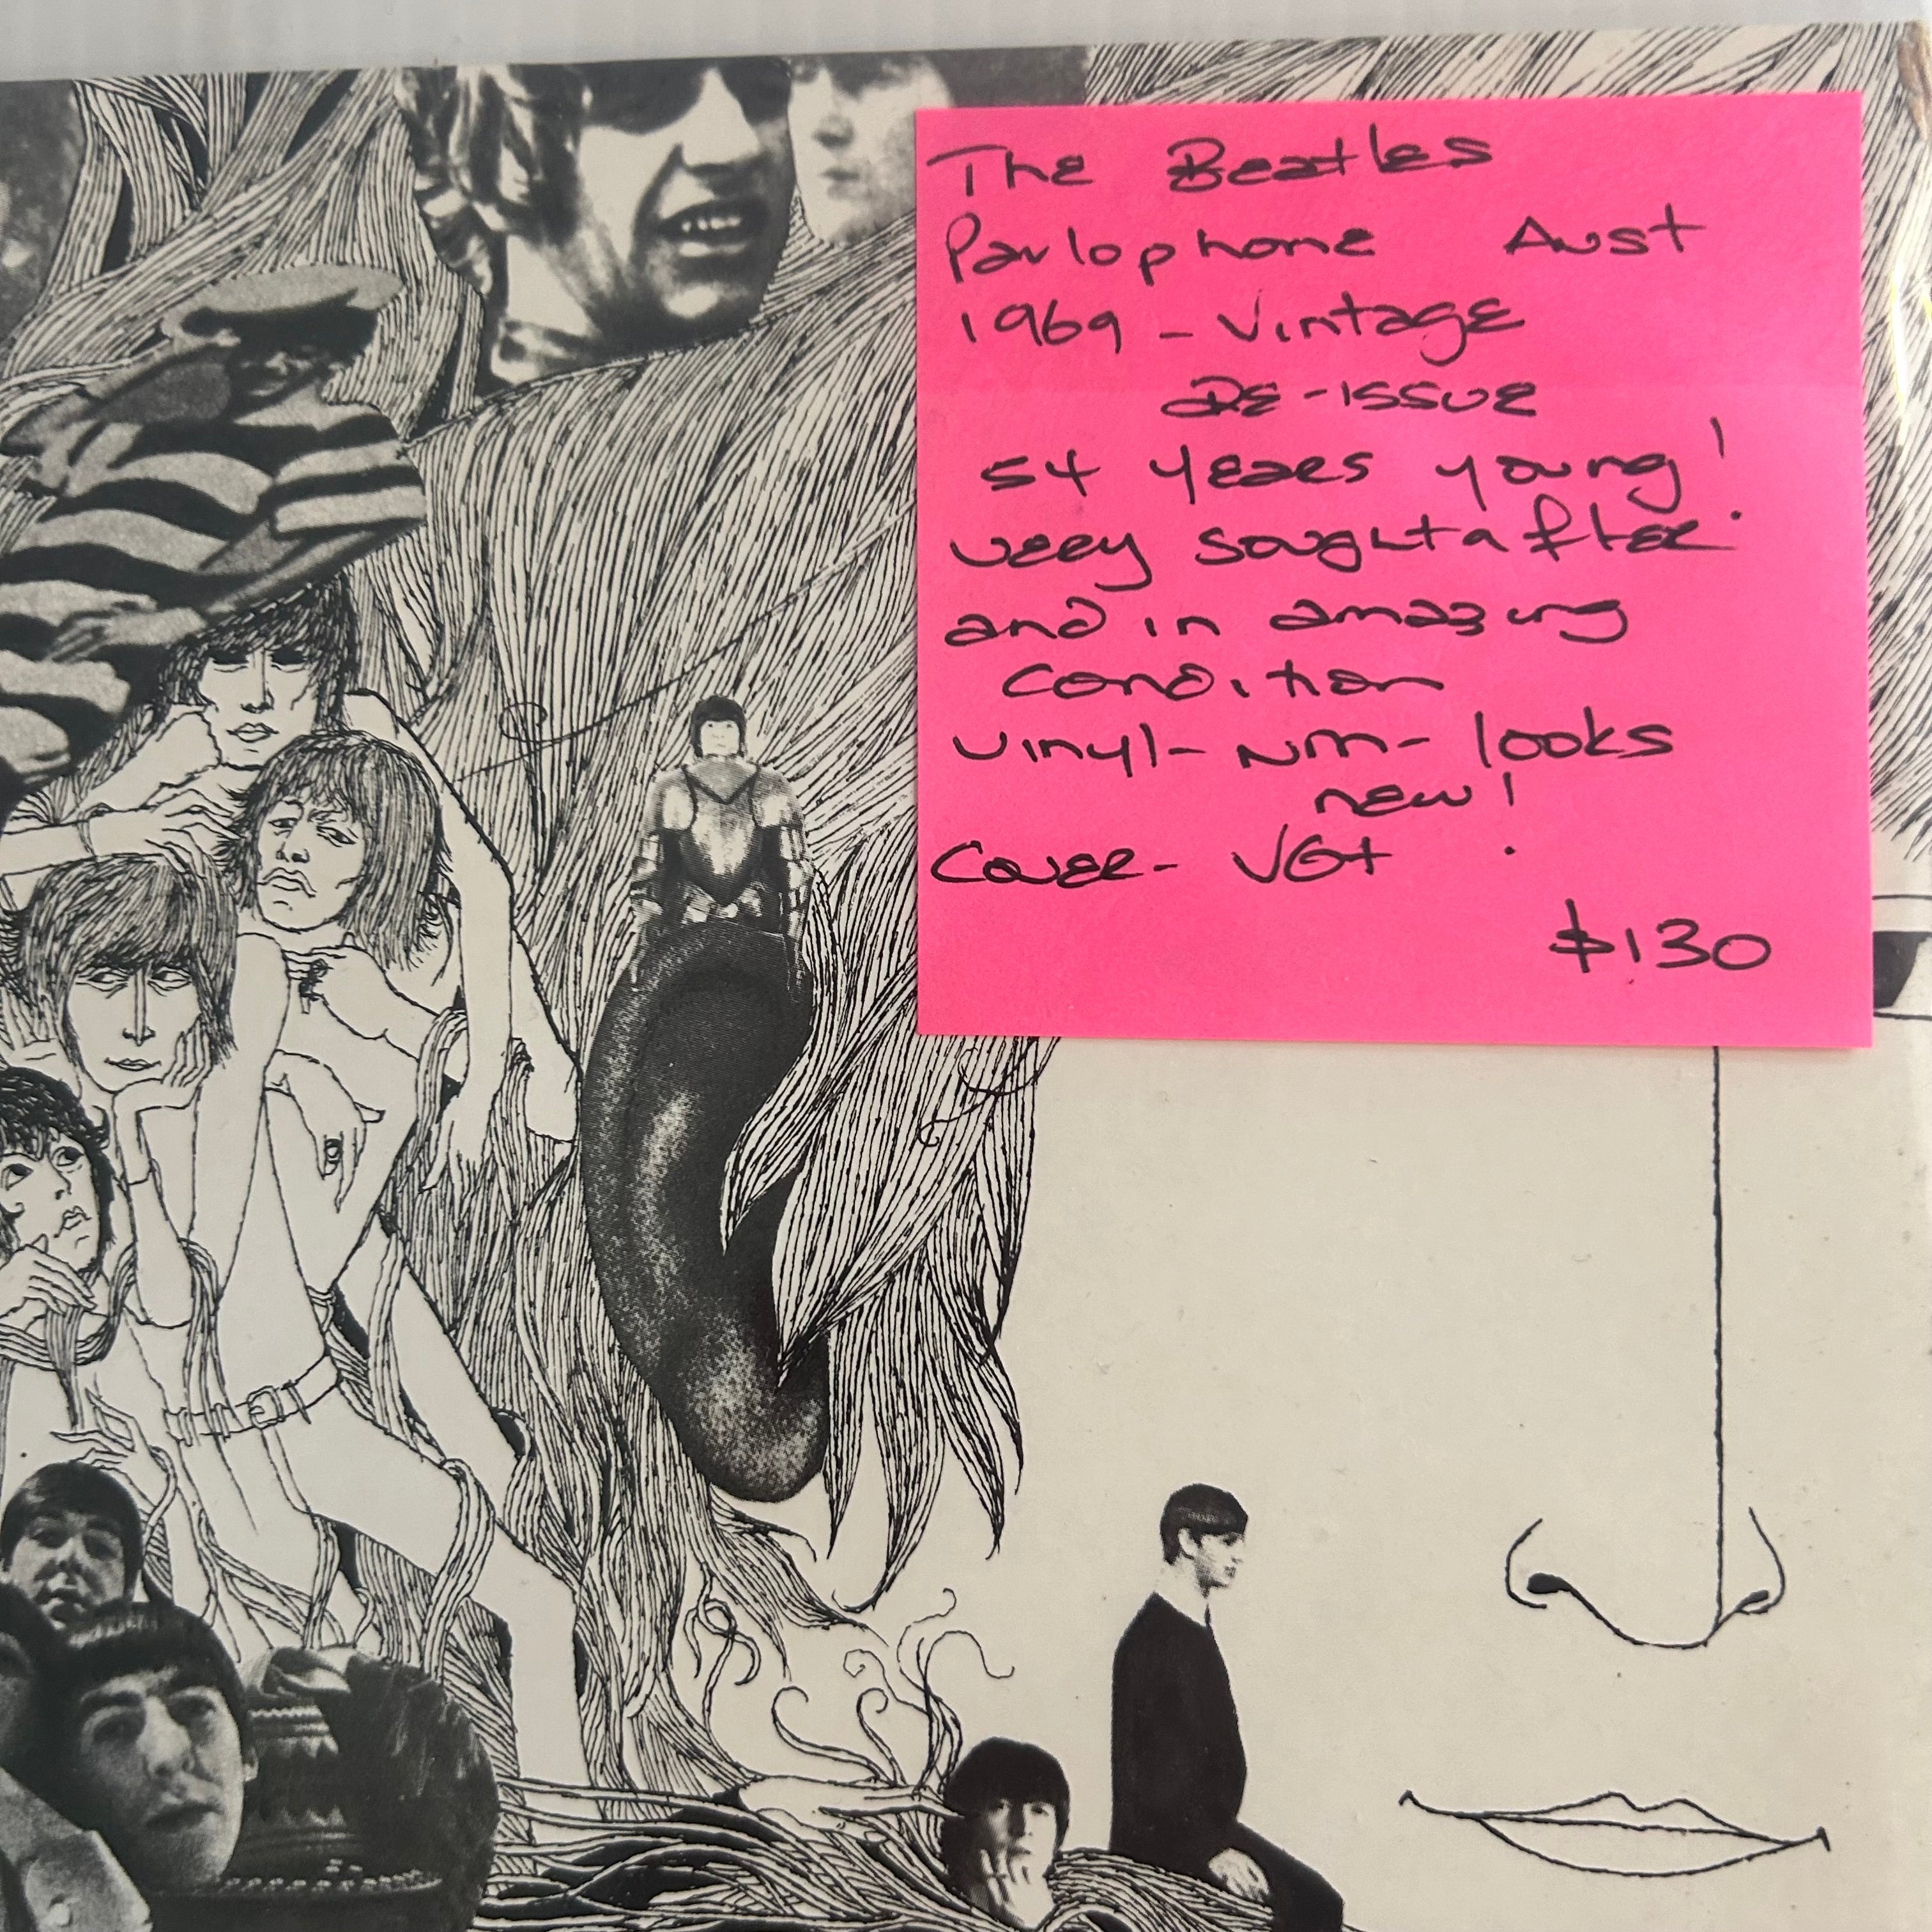 The Beatles
Parlophone Aust
1969 - Vintage
RE-ISSUE
54 years young!
very sought after
and in amazing
condition
vinyl - NM - looks
new!
Cover - VG+
$130